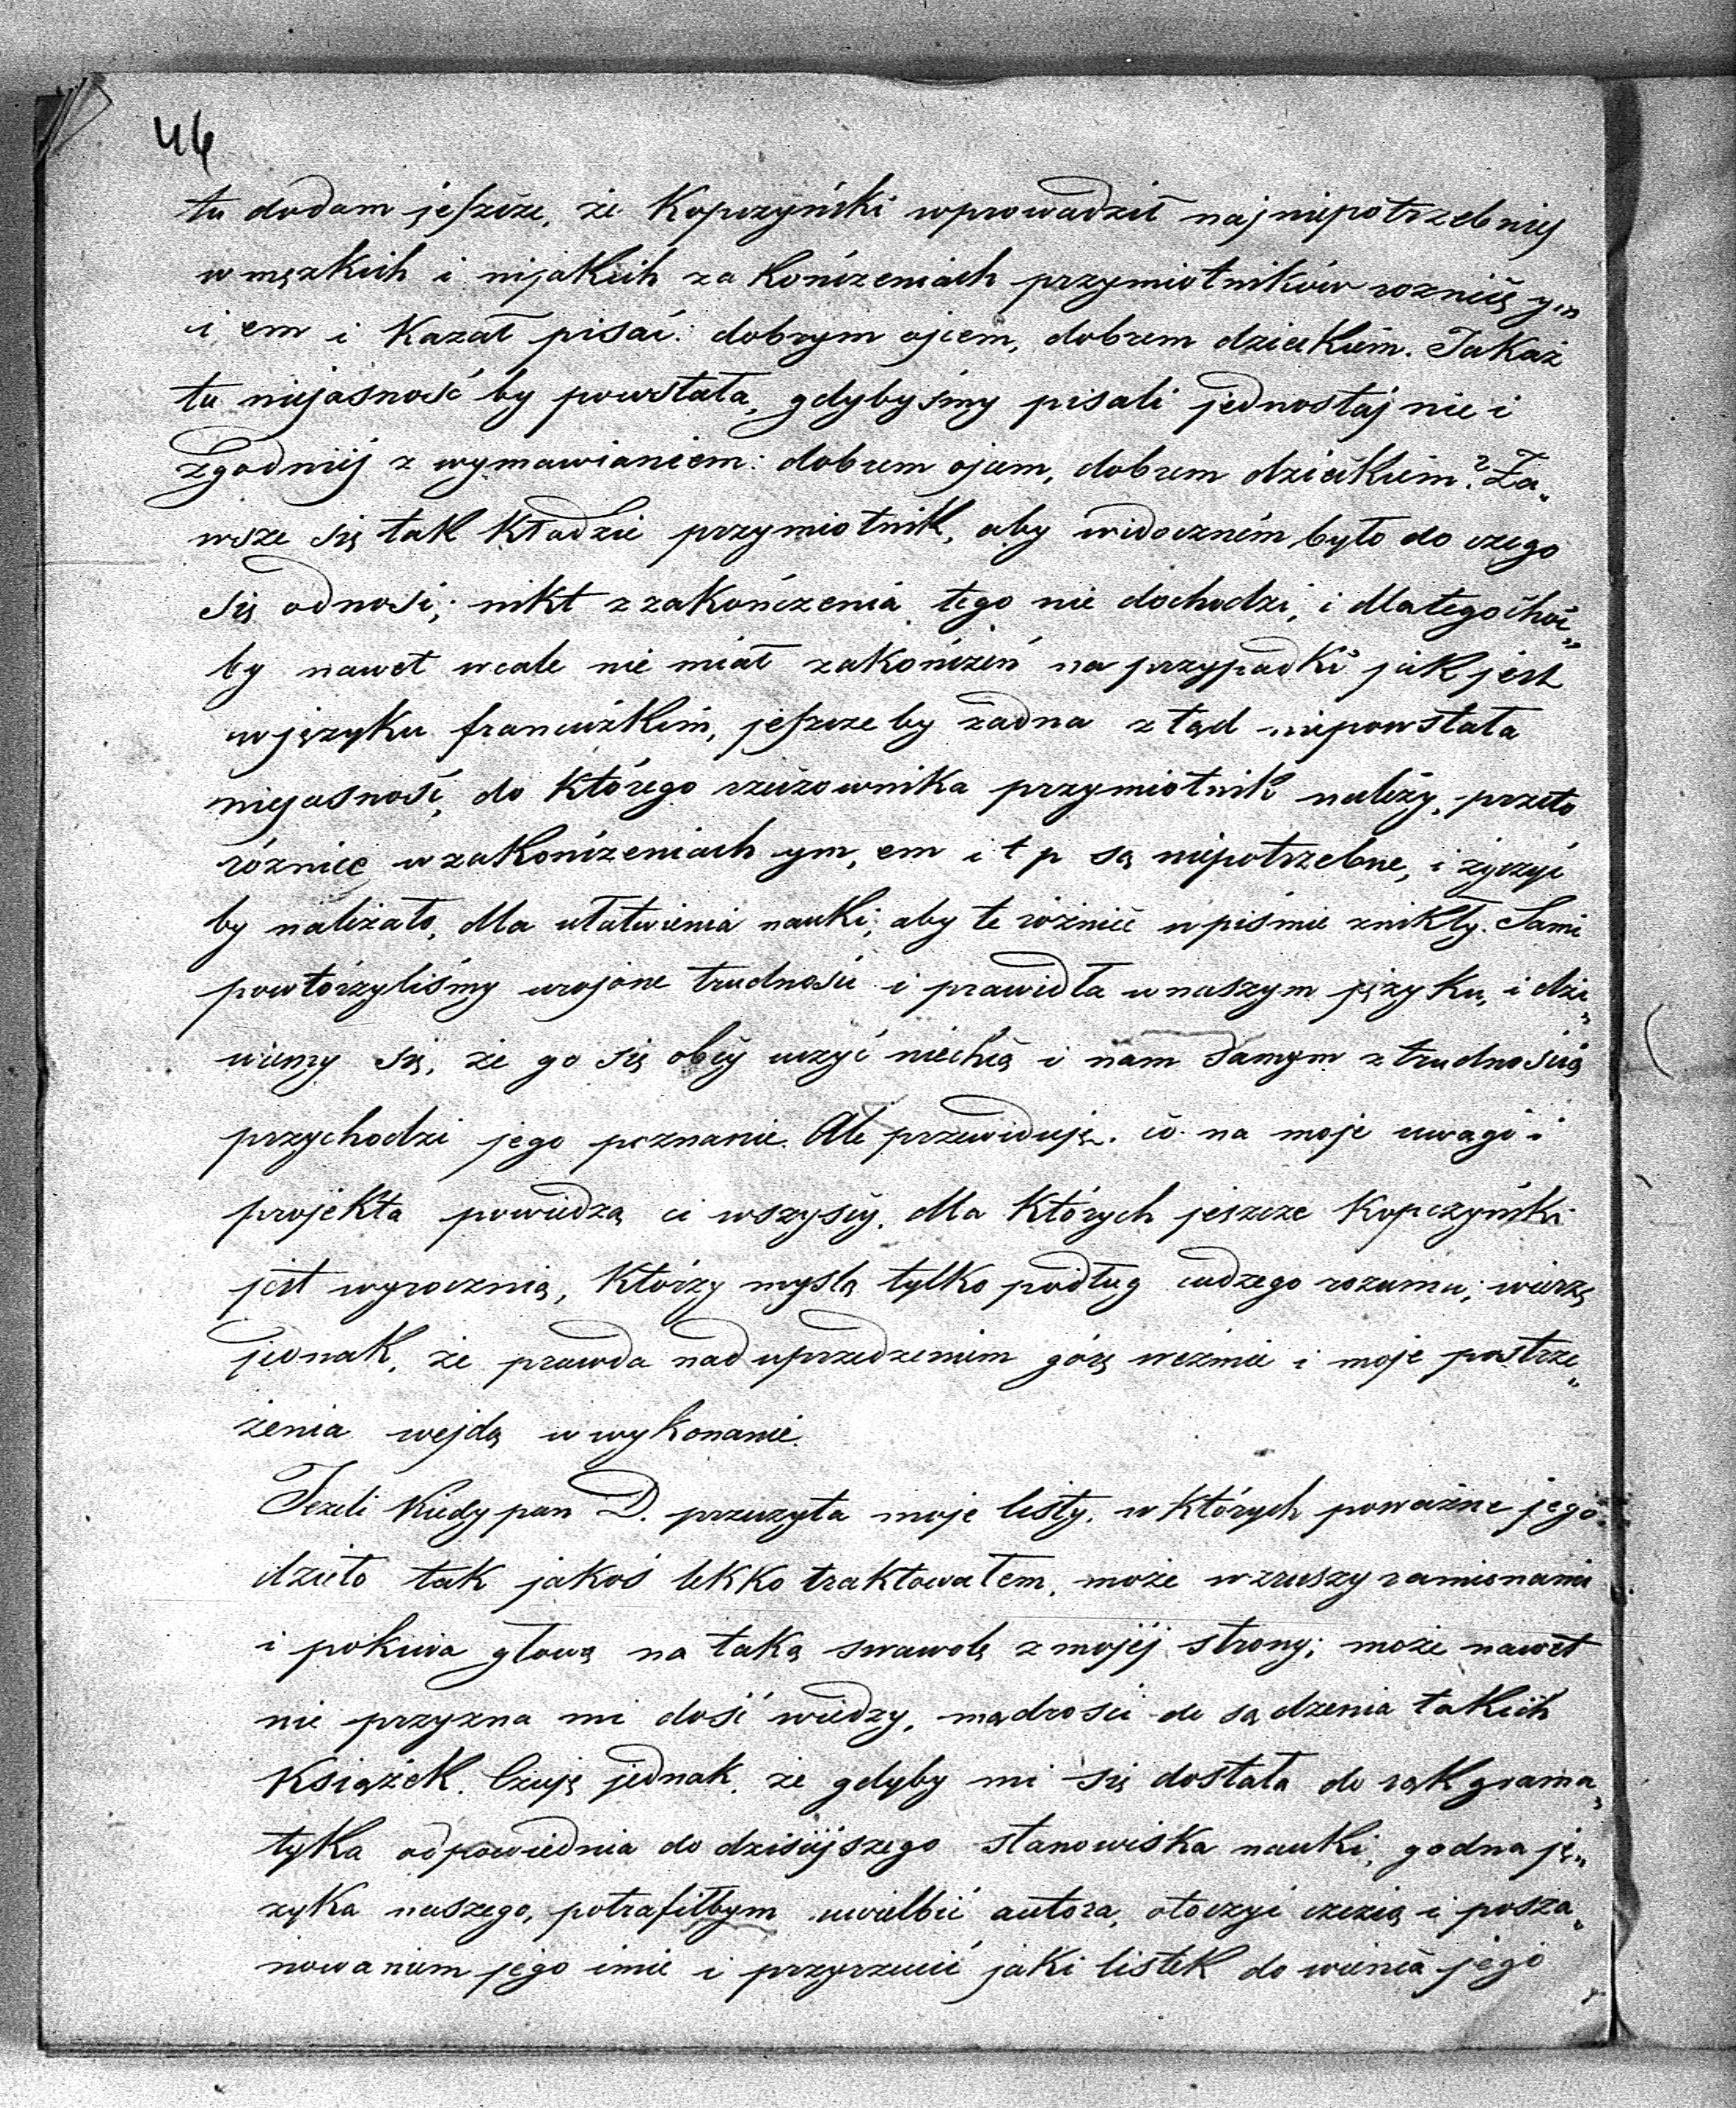 46
tu dodam jeszcze, że Kopczyński wprowadził najniepotrzebniej
w męzkich i nijakich zakończeniach przymiotników roznicę ym
i em i Kazał pisać: dobrym ojcem, dobrem dzieckiem. Jakaż
tu niejasność by powstała, gdybyśmy pisali jednostajnie i
zgodniej z wymawianiem: dobrem ojcem, dobrem dzieckiem? Za„
wsze się tak kładzie przymiotnik, aby widocznem było do czego
się odnosi; nikt z zakończenia tego nie dochodzi, i dlatego choć„
by nawet wcale nie miał zakończeń na przypadki jak jest
w języku francuzkim, jeszcze by żadna ztąd niepowstała
niejasność, do którego rzeczownika przymiotnik należy, przeto
różnice w zakończeniach ym, em i t p są niepotrzebne, i życzyć
by należało, dla ułatwienia nauki, aby te różnice w piśmie znikły. Sami
powtórzyliśmy urojone trudności i prawidła w naszym języku, i dzi„
wiemy się, że go się obcy uczyć niechcą i nam samym z trudnością
przychodzi jego poznanie. Ale przewiduję, co na moje uwagi i
projekta powiedzą ci wszyscy, dla których jeszcze Kopczyński
jest wyrocznią, którzy myślą tylko podług cudzego rozumu; wierzę
jednak, że prawda nad uprzedzeniem górę weźmie i moje postrze„
żenia wejdą w wykonanie.
Jeżeli kiedy pan D. przeczyta moje listy, w których poważne jego
dzieło tak jakoś lekko traktowałem, może wzruszy ramionami
i pokiwa głową na taką swawolę z mojéj strony; może nawet
nie przyzna mi dość wiedzy, mądrości do sądzenia takich
książek. Czuję jednak, że gdyby mi się dostała do rąk grama„
tyka odpowiednia do dzisiejszego stanowiska nauki, godna ję„
zyka naszego, potrafiłbym uwielbić autora, otoczyć czcią i posza„
nowaniem jego imie i przyrzucić jaki listek do wieńca jego